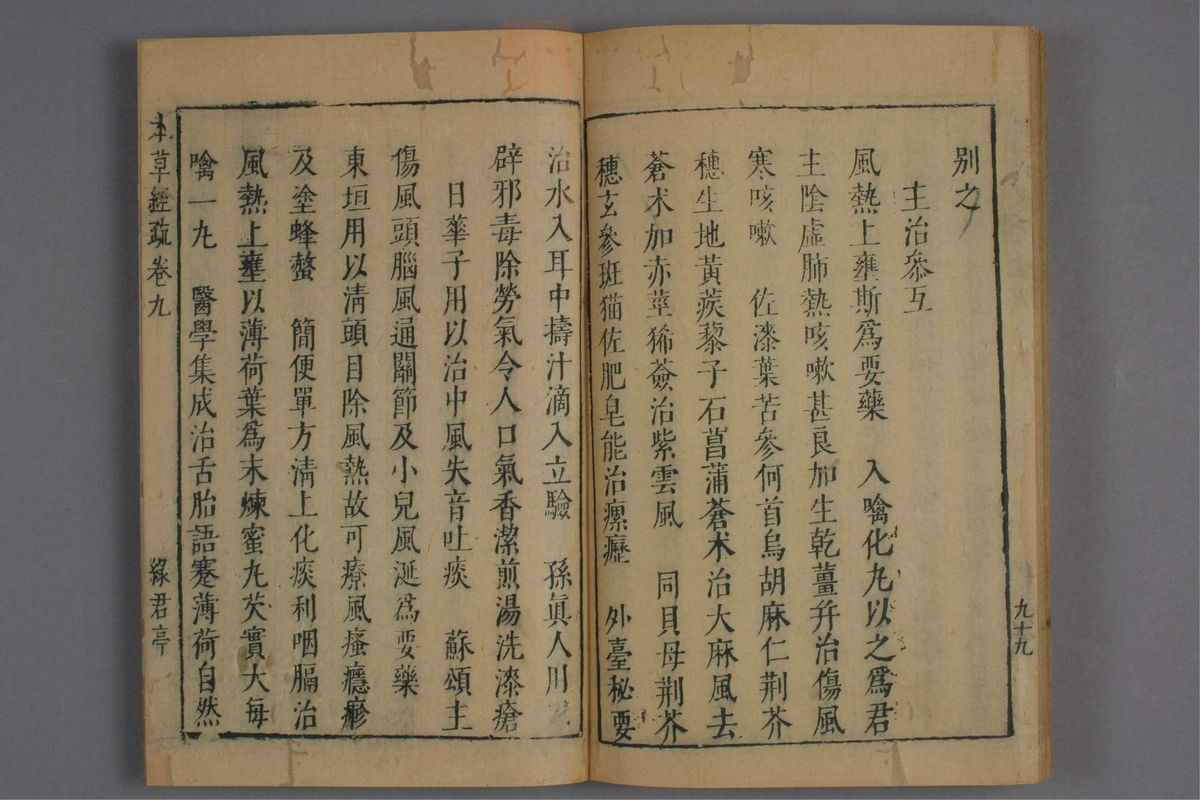 別之
主治參互
風熱上壅斯爲要藥　入噙化九以之爲君
主陰虛肺熱咳嗽甚良加生乾薑幷治傷風
寒咳嗽　佐漆葉苦參何首烏胡麻仁荆芥
穗生地黃蒺藜子石菖蒲蒼术治大麻風去
蒼术加赤莖豨薟治紫雲風　同貝母荆芥
穗玄參斑猫佐肥皂能治瘰癧　外臺秘要
九十九
治水入耳中擣汁滴入立驗　孫眞人用
辟邪毒除勞氣令人口氣香潔煎湯洗漆瘡
日華子用以治中風失音吐痰　蘇頌主
傷風頭腦風通關節及小兒風涎爲要藥
東垣用以淸頭目除風熱故可療風瘙癮疹
及塗蜂螫　簡便單方淸上化痰利咽膈治
風熱上壅以薄荷葉爲末煉蜜九芡實大每
噙一九　醫學集成治舌胎語蹇薄荷自然
本草經疏卷九
綠君亭